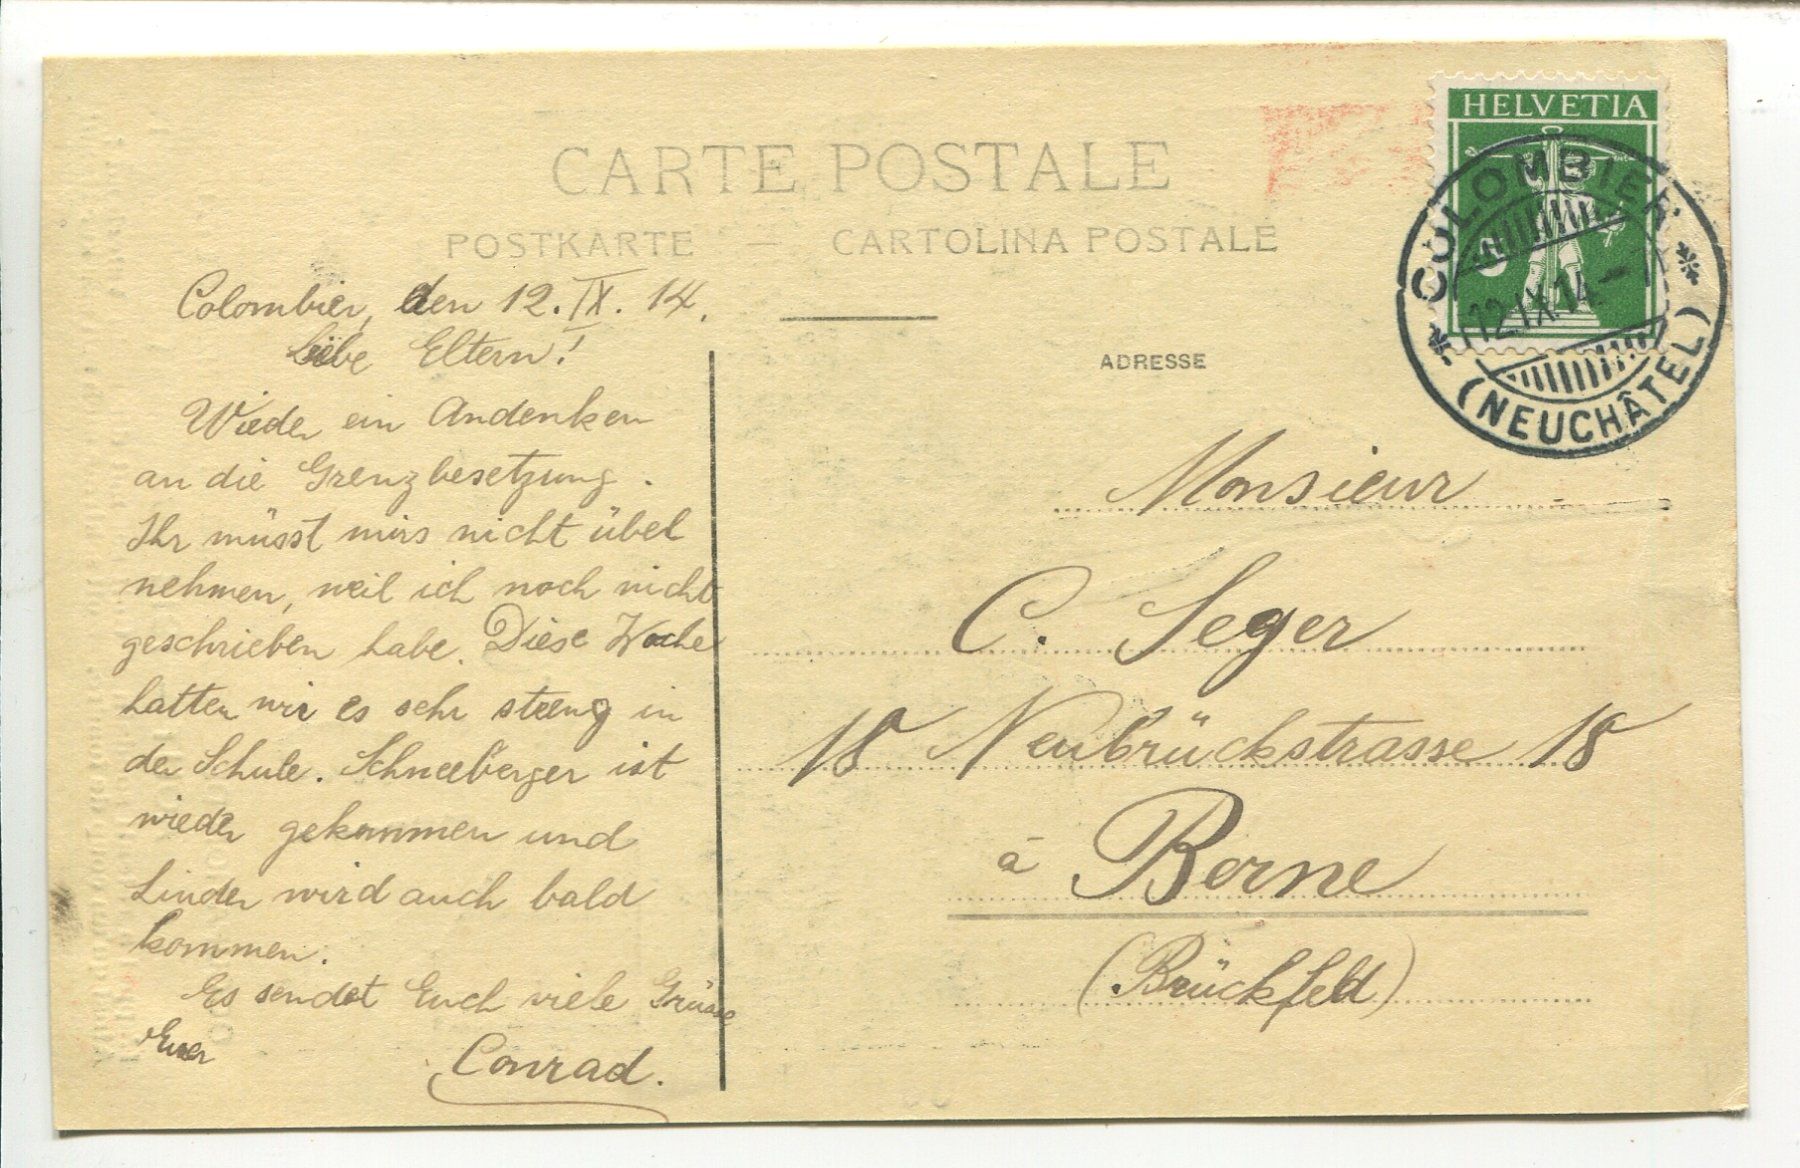 CARTE POSTALE
POSTKARTE — CARTOLINA POSTALE
Colombier, den 12. IX. 14.
Liebe Eltern!
Wieder ein Andenken
an die Grenzbesetzung.
Ihr müsst mirs nicht übel
nehmen, weil ich noch nicht
geschrieben habe. Diese Woche
hatten wir es sehr streng in
der Schule. Schneeberger ist
wieder gekommen und
Linder wird auch bald
kommen.
Es sendet Euch viele Grüsse
Euer
Conrad.
HELVETIA
COLOMBIER
12.IX.14.–
(NEUCHÂTEL)
ADRESSE
Monsieur
C. Seger
18 Neubrückstrasse 18
à Berne
(Brückfeld)